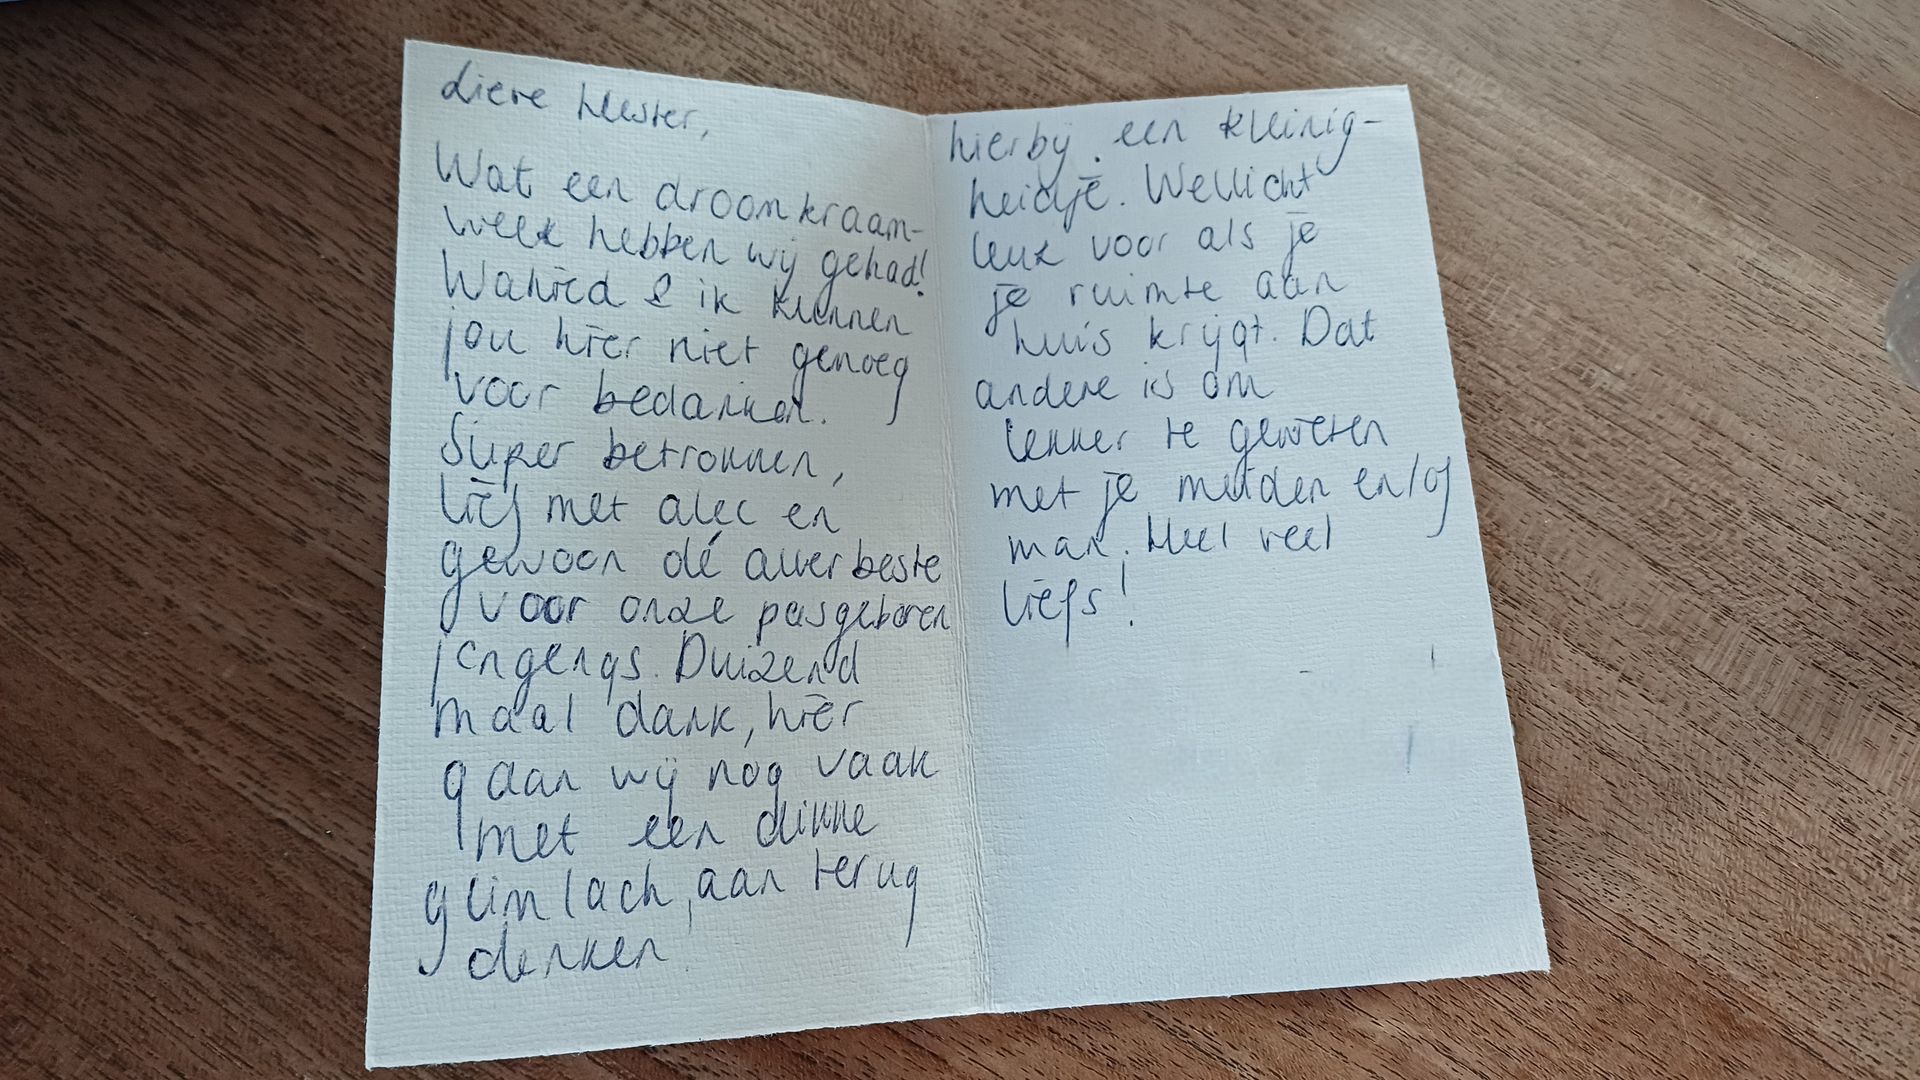 Lieve Hester,
Wat een droomkraam-
week hebben wij gehad!
Wahied & ik kunnen
jou hier niet genoeg
voor bedanken.
Super betrokken,
lief met alec en
gewoon dé allerbeste
voor onze pasgeboren
jongens. Duizend
maal dank, hier
gaan wij nog vaak
met een dikke
glimlach, aan terug
denken!
hierbij een kleinig-
heidje. Wellicht
leuk voor als je
je ruimte aan
huis krijgt. Dat
andere is om
lekker te genieten
met je meiden en/of
man. Heel veel
liefs!